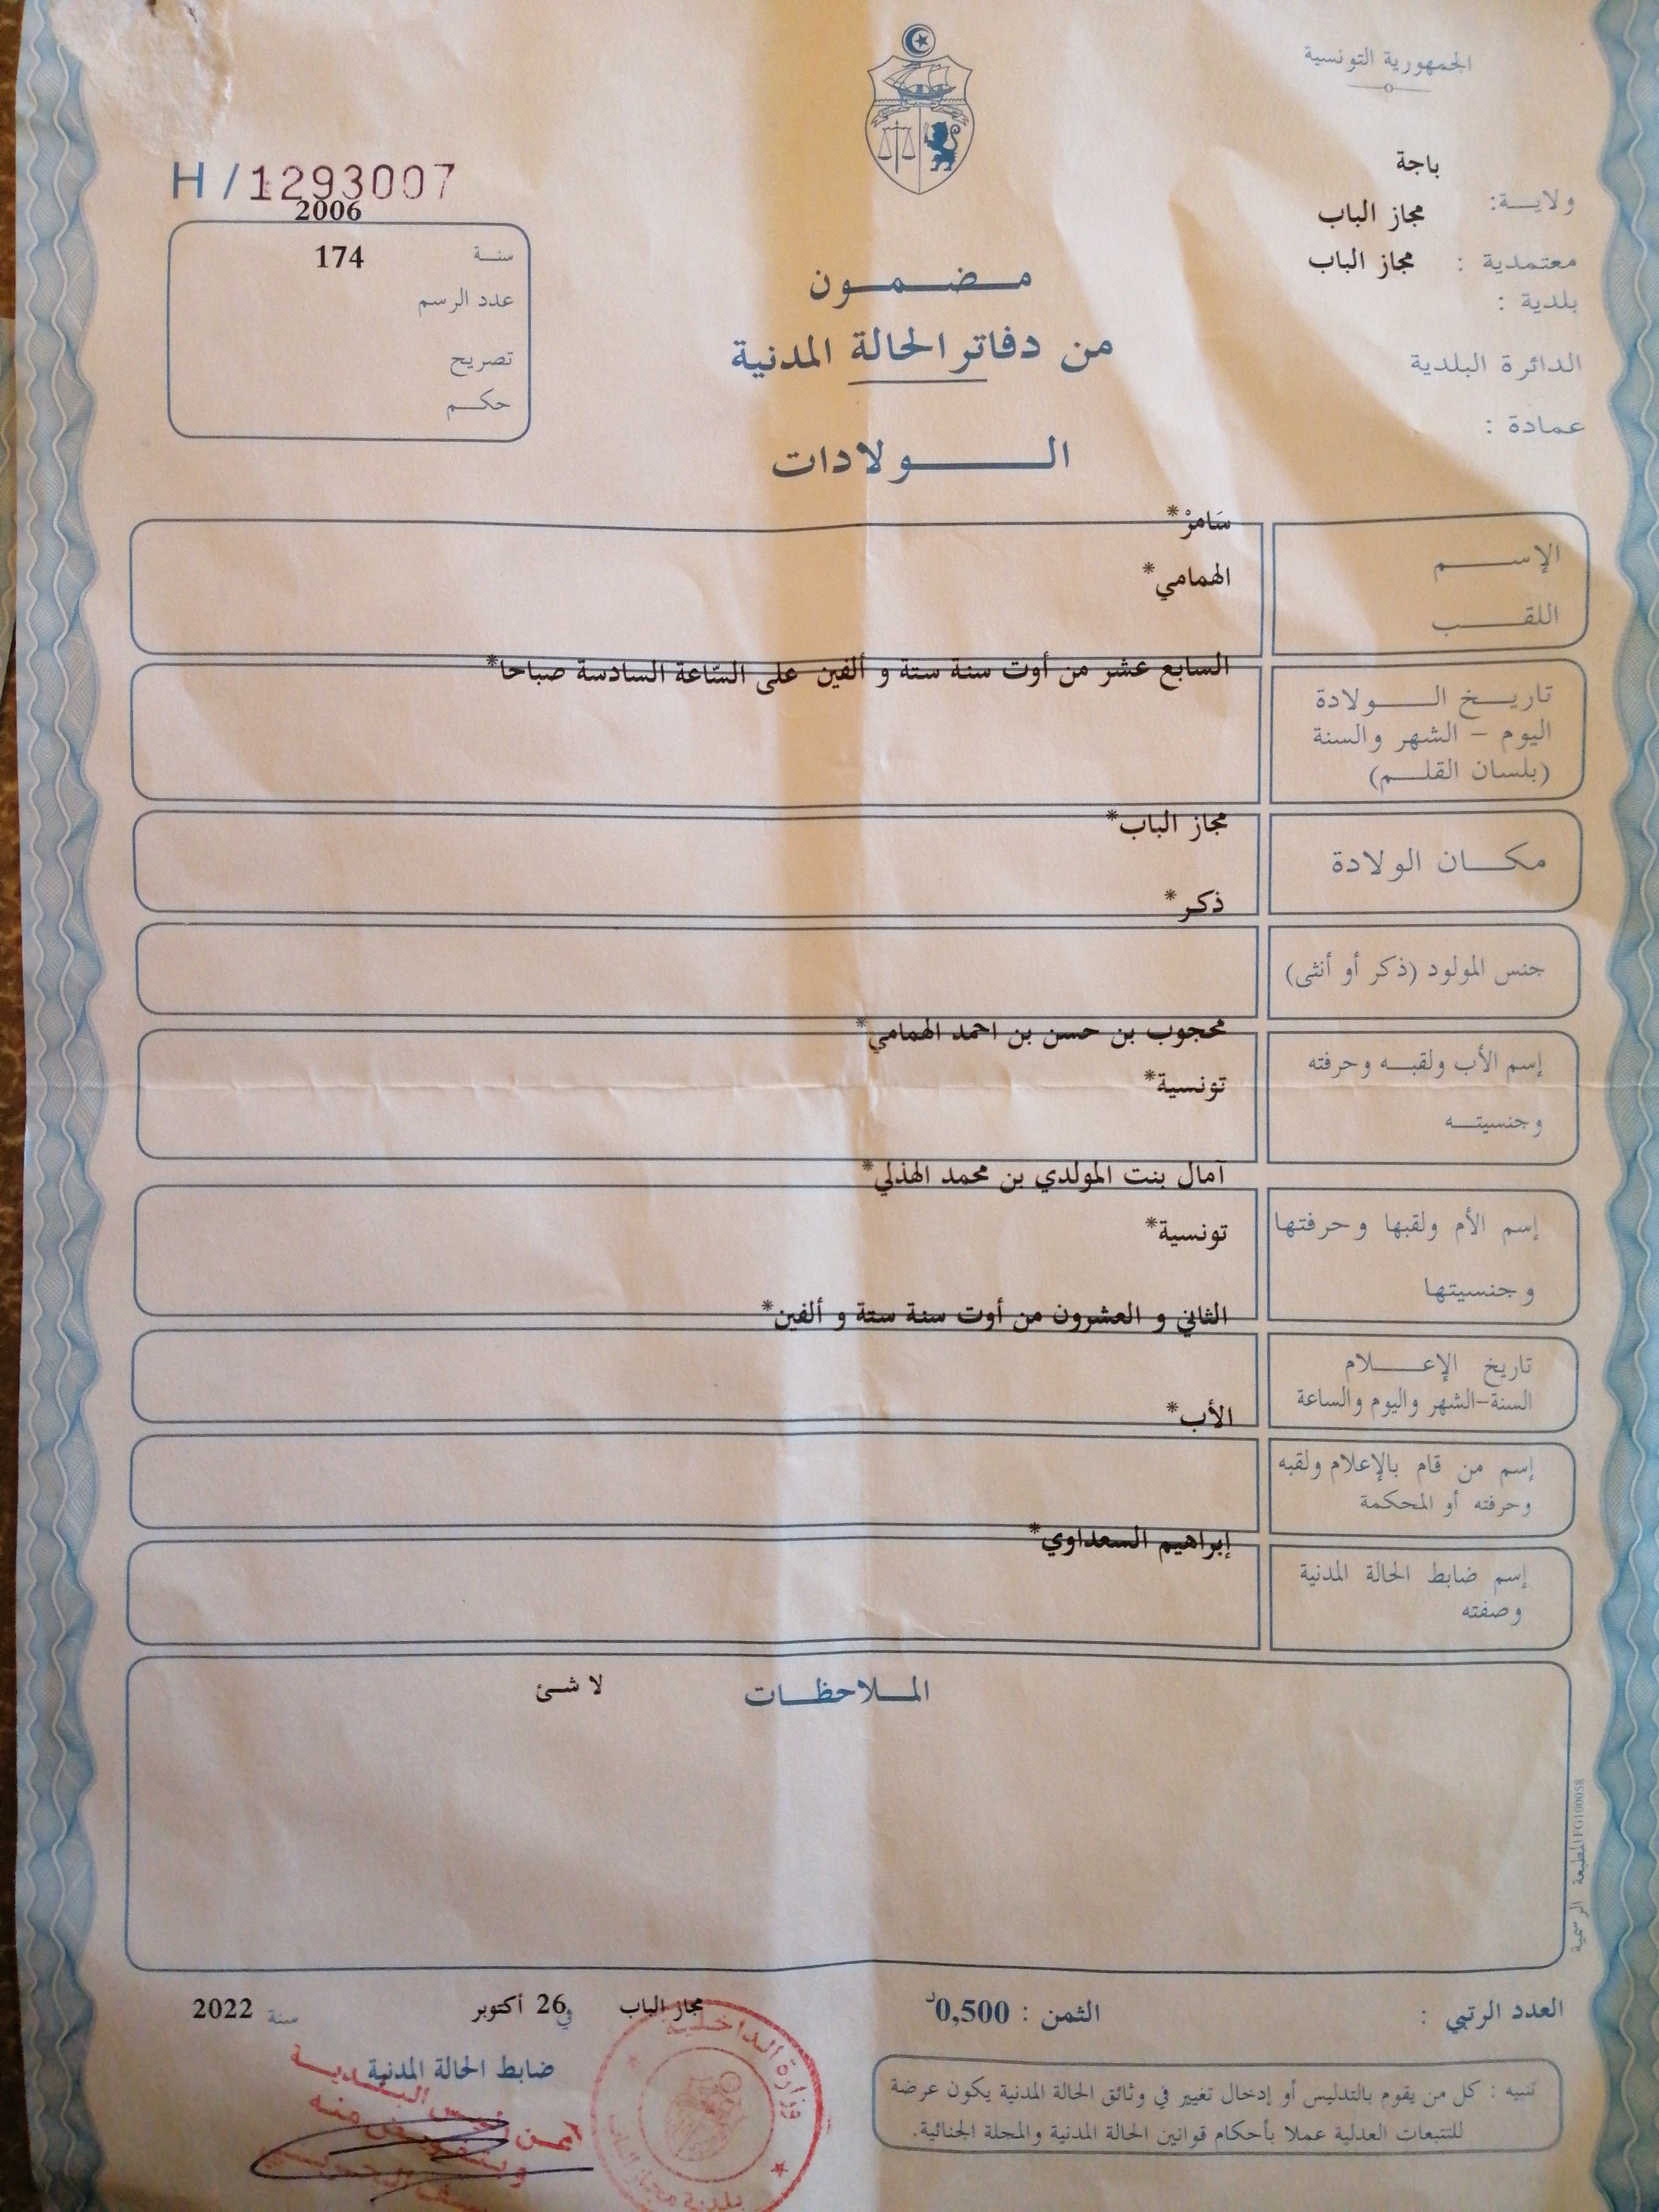 الجمهورية التونسية
باجة
ولايـــة:
مجاز الباب
معتمدية :
مجاز الباب
بلدية :
الدائرة البلدية
عمادة :
H/1293007
2006
سنـــة
174
عدد الرسم
تصريح
حكـــم
مـــضـــمـــون
من دفاتر الحالة المدنية
الـــــولادات
سَامرْ*
الإســـــم
الهمامي*
اللقـــــب
السابع عشر من أوت سنة ستة و ألفين على السّاعة السادسة صباحا*
تاريـــخ الـــــولادة
اليوم - الشهر والسنة
(بلسان القلـــم)
مجاز الباب*
مكـــان الولادة
ذكر*
جنس المولود (ذكر أو أنثى)
محجوب بن حسن بن احمد الهمامي*
إسم الأب ولقبـــه وحرفته
تونسية*
وجنسيتـــه
آمال بنت المولدي بن محمد الهذلي*
إسم الأم ولقبها وحرفتها
تونسية*
وجنسيتها
الثاني و العشرون من أوت سنة ستة و ألفين*
تاريخ الإعـــــلام
السنة-الشهر واليوم والساعة
الأب*
إسم من قام بالإعلام ولقبه
وحرفته أو المحكمة
إبراهيم السعداوي*
إسم ضابط الحالة المدنية
وصفته
المـــلاحظـــات
لا شئ
المطبعة الرسمية
العدد الرتبي :
الثمن : 0,500د
مجاز الباب في 26 أكتوبر سنة 2022
ضابط الحالة المدنية
تنبيه : كل من يقوم بالتدليس أو إدخال تغيير في وثائق الحالة المدنية يكون عرضة
للتتبعات العدلية عملا بأحكام قوانين الحالة المدنية والمجلة الجنائية.
وزارة الداخلية
بلدية مجاز الباب